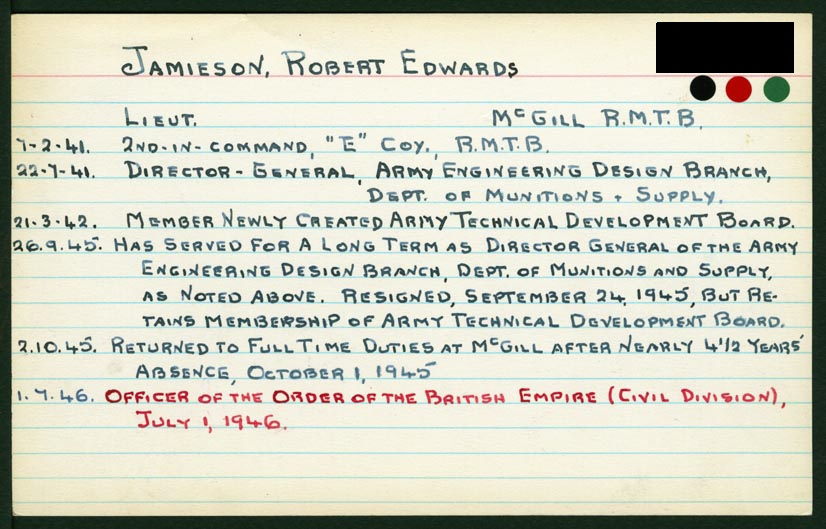 JAMIESON, ROBERT EDWARDS
LIEUT. McGILL R.M.T.B.
7-2-41. 2ND-IN-COMMAND, "E" COY., R.M.T.B.
22-7-41. DIRECTOR-GENERAL, ARMY ENGINEERING DESIGN BRANCH,
DEPT. OF MUNITIONS + SUPPLY.
21.3.42. MEMBER NEWLY CREATED ARMY TECHNICAL DEVELOPMENT BOARD.
26.9.45. HAS SERVED FOR A LONG TERM AS DIRECTOR GENERAL OF THE ARMY
ENGINEERING DESIGN BRANCH, DEPT. OF MUNITIONS AND SUPPLY,
AS NOTED ABOVE. RESIGNED, SEPTEMBER 24, 1945, BUT RE-
TAINS MEMBERSHIP OF ARMY TECHNICAL DEVELOPMENT BOARD.
2.10.45. RETURNED TO FULL TIME DUTIES AT McGILL AFTER NEARLY 4 1/2 YEARS'
ABSENCE, OCTOBER 1, 1945
1.7.46. OFFICER OF THE ORDER OF THE BRITISH EMPIRE (CIVIL DIVISION),
JULY 1, 1946.